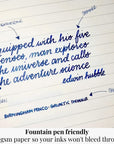 equipped with his five
senses, man explores
the universe and calls
the adventure science
edwin hubble
Fountain pen friendly
gsm paper so your inks won't bleed throu